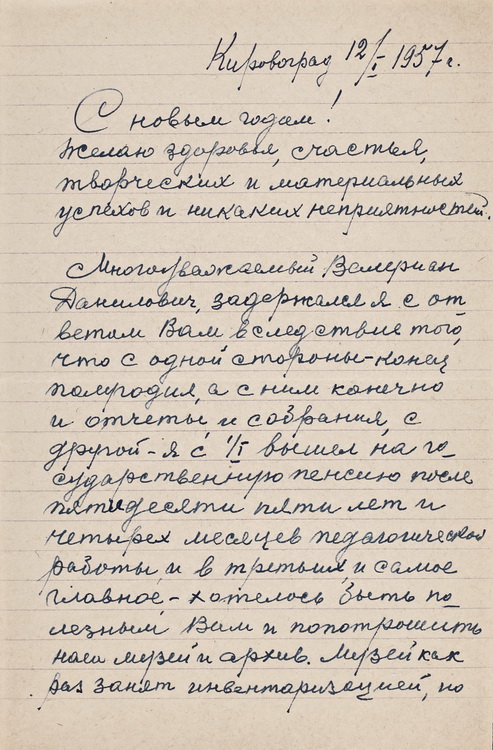 Кировоград 12/I 1957 г.
С новым годом!
Желаю здоровья, счастья,
творческих и материальных
успехов и никаких неприятностей.
Многоуважаемый Валериан
Данилович, задержался я с от
ветом Вам, вследствие того,
что с одной стороны-конец
полугодия, а с ним конечно
и отчеты и собрания, с
другой-я с 1/I вышел на го
сударственную пенсию после
пятидесяти пяти лет и
четырех месяцев педагогической
работы и в третьих, и самое
главное,- хотелось быть по
лезным Вам и попотрошить
наш музей и архив. Музей как
раз занят инвентаризацией, но